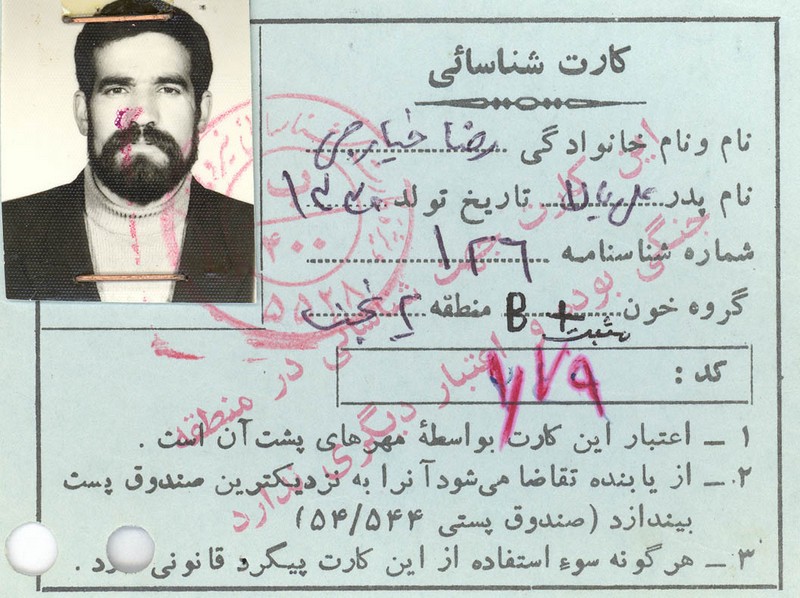 کارت شناسائی
نام ونام خانوادگی رضا
نام پدر تاریخ تولد ۱۳۳۰
شماره شناسنامه ۱۳۶
گروه خون B+ مثبت منطقه
کد : ۷۷۹
۱ ـ اعتبار این کارت بواسطهٔ مهرهای پشت آن است .
۲ ـ از یابنده تقاضا می‌شود آنرا به نزدیکترین صندوق پست
بیندازد (صندوق پستی ۵۴/۵۴۴)
۳ ـ هرگونه سوءِ استفاده از این کارت پیگرد قانونی دارد .
این کارت جهت شناسائی در منطقه
جنگی بوده و اعتبار دیگری ندارد